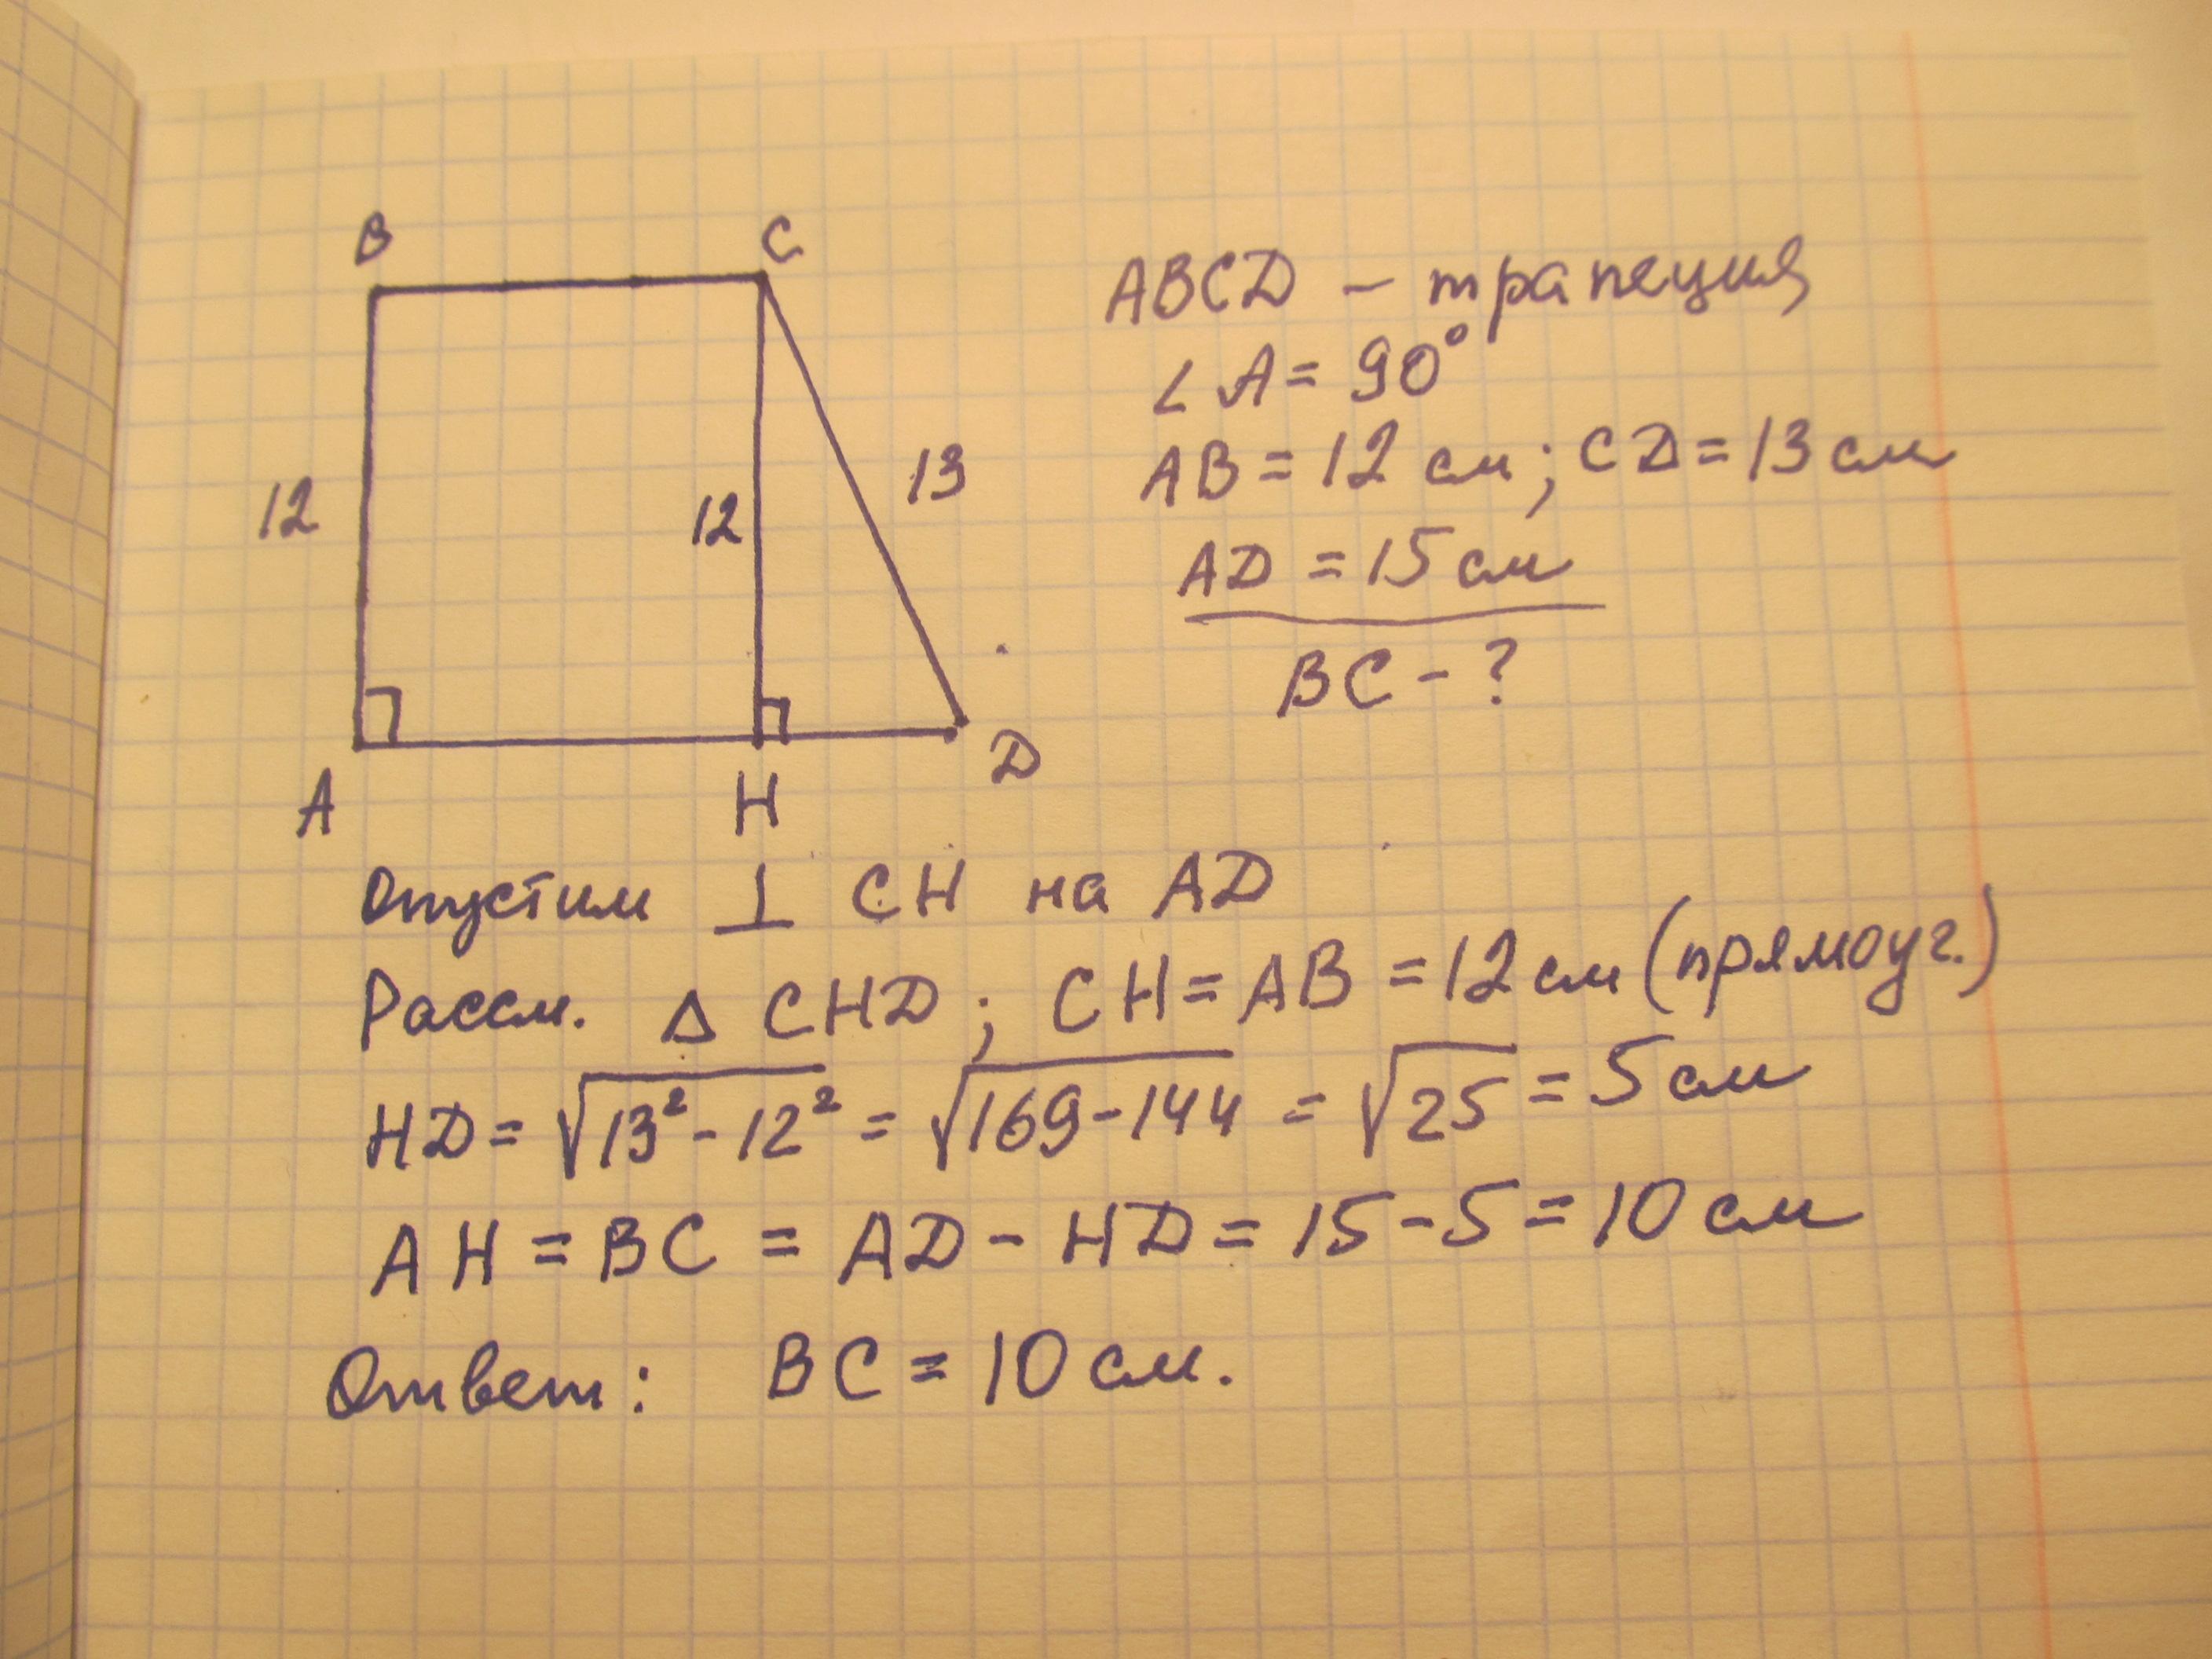 B C
ABCD - трапеция
∠A = 90°
12 12 13
AB = 12 см; CD = 13 см
AD = 15 см
BC - ?
A H D
Опустим ⊥ CH на AD
Рассм. Δ CHD; CH = AB = 12 см (прямоуг.)
HD = √13² - 12² = √169 - 144 = √25 = 5 см
AH = BC = AD - HD = 15 - 5 = 10 см
Ответ: BC = 10 см.